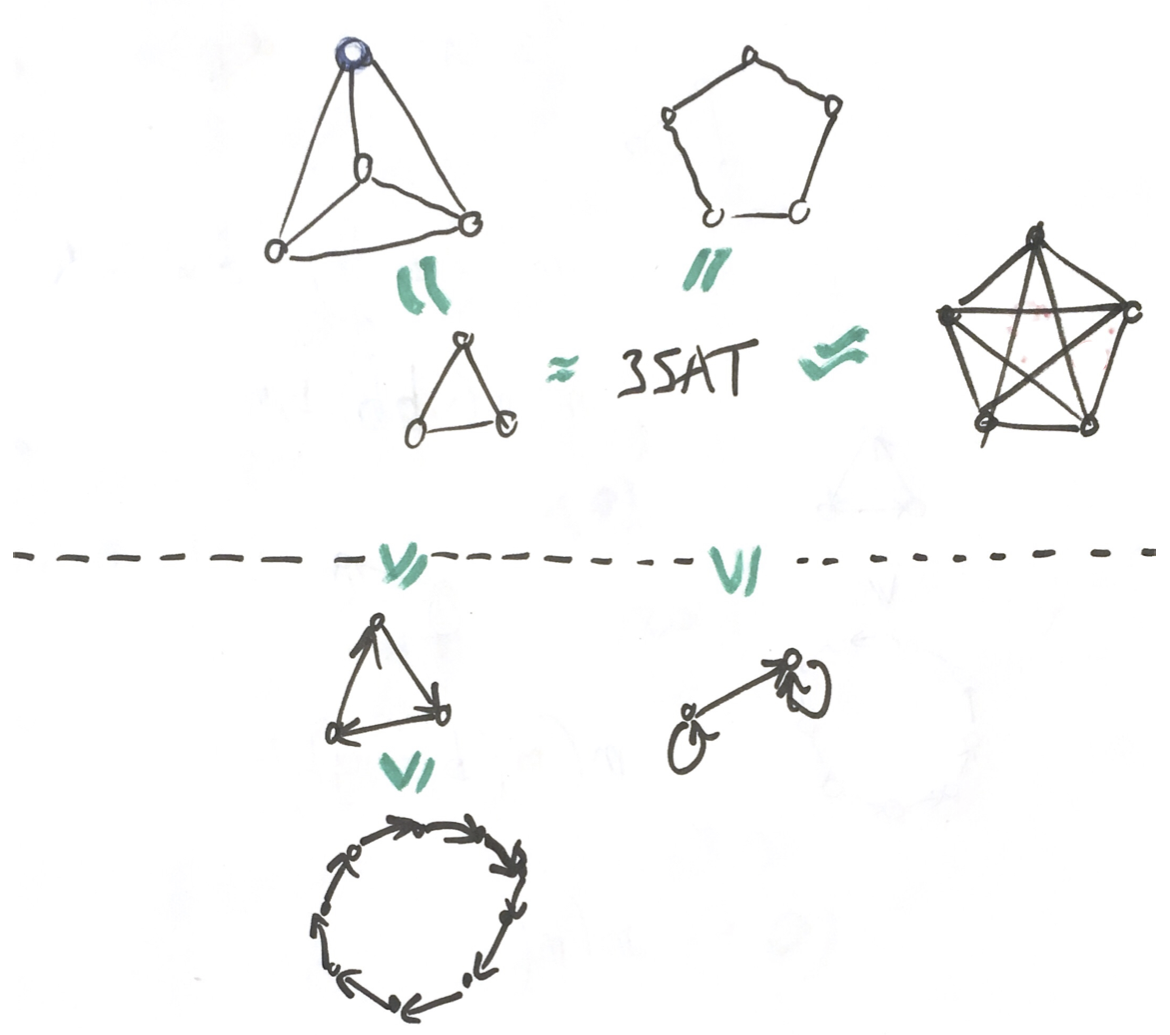 ≈ 3SAT